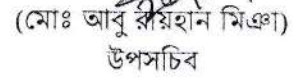 (মোঃ আবু রায়হান মিঞা)
উপসচিব